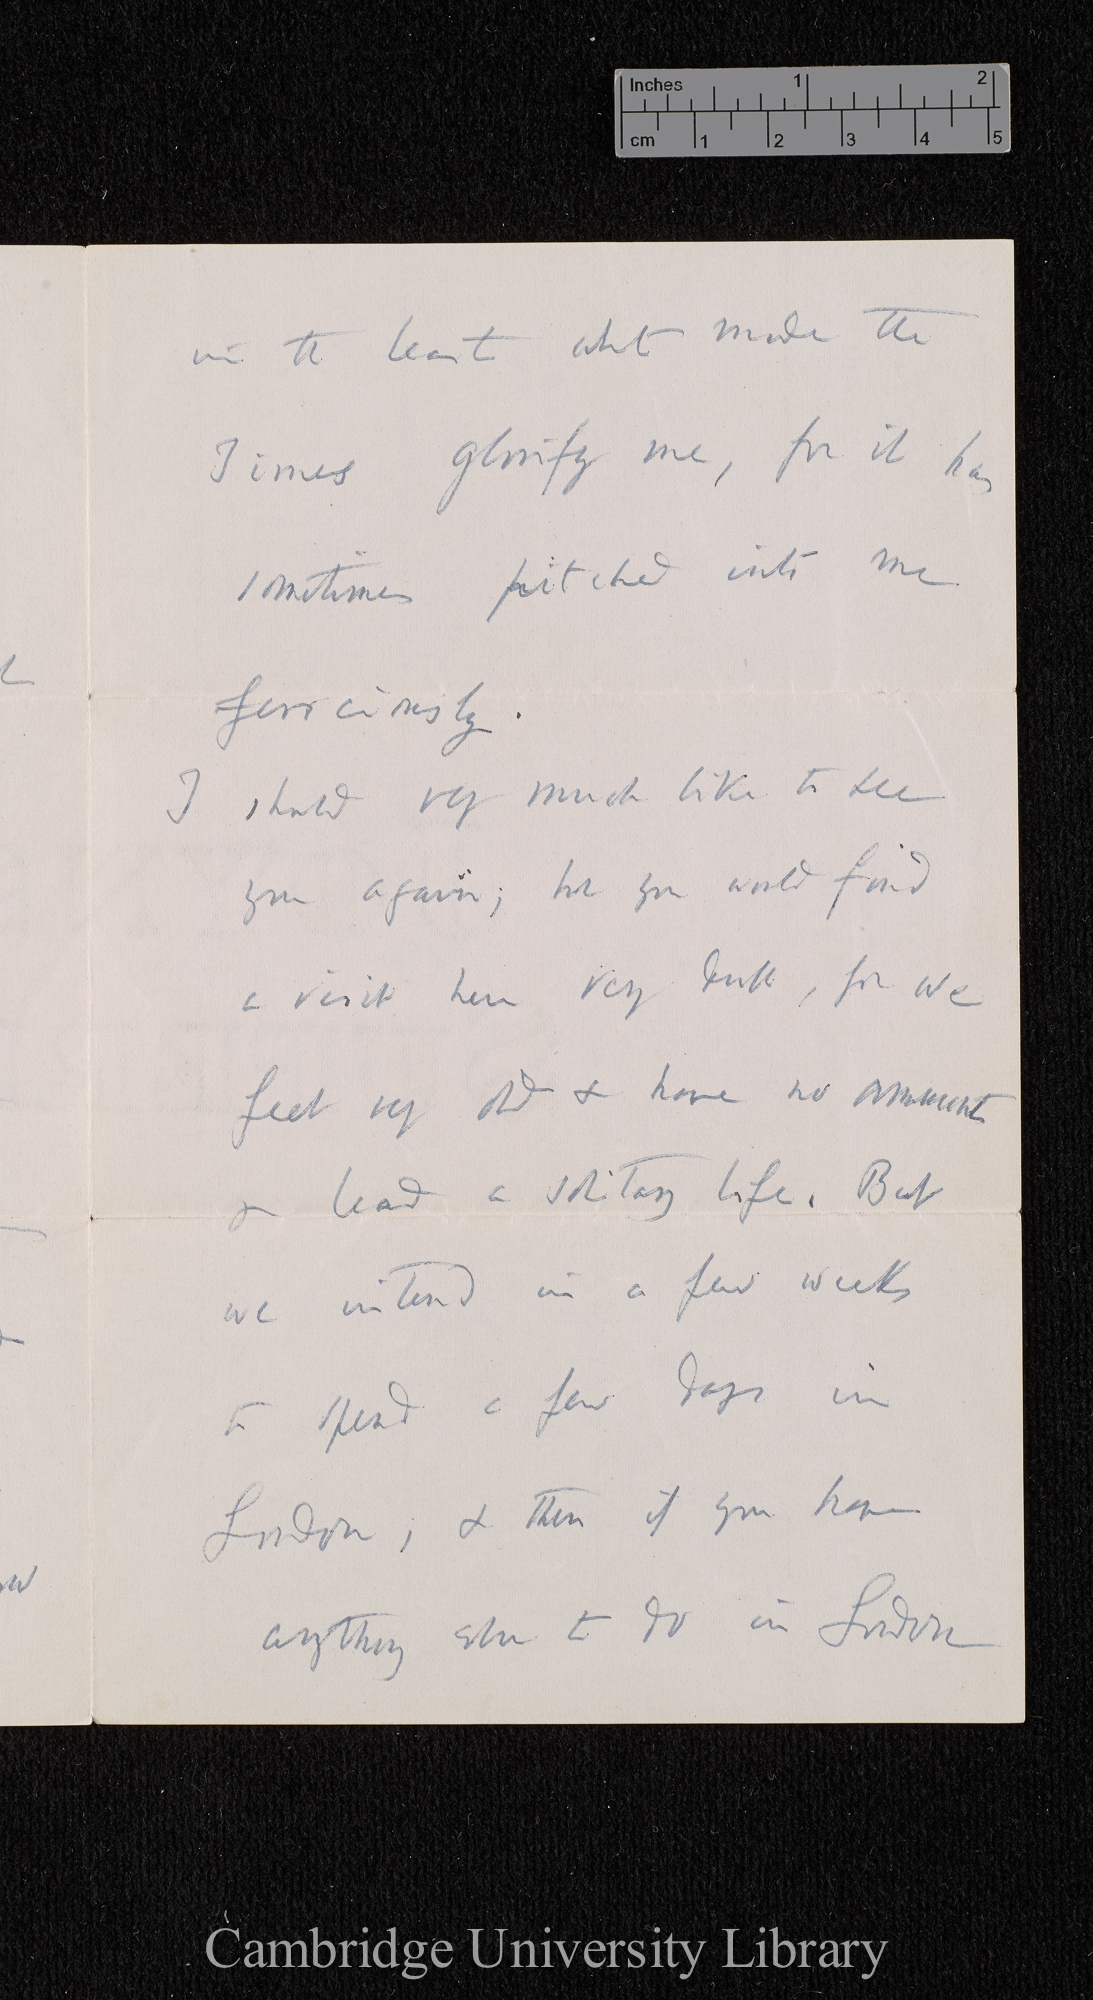 Inches 1 2
cm 1 2 3 4 5
in the least what made the
Times glorify me, for it has
sometimes pitched into me
ferociously.
I should very much like to see
you again; but you would find
a visit here very dull, for we
feel very old & have no amusement
& lead a solitary life. But
we intend in a few weeks
to spend a few days in
London, & then if you have
anything else to do in London
Cambridge University Library